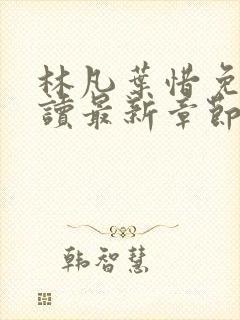 林凡葉惜免
讀最新章節
韩智慧